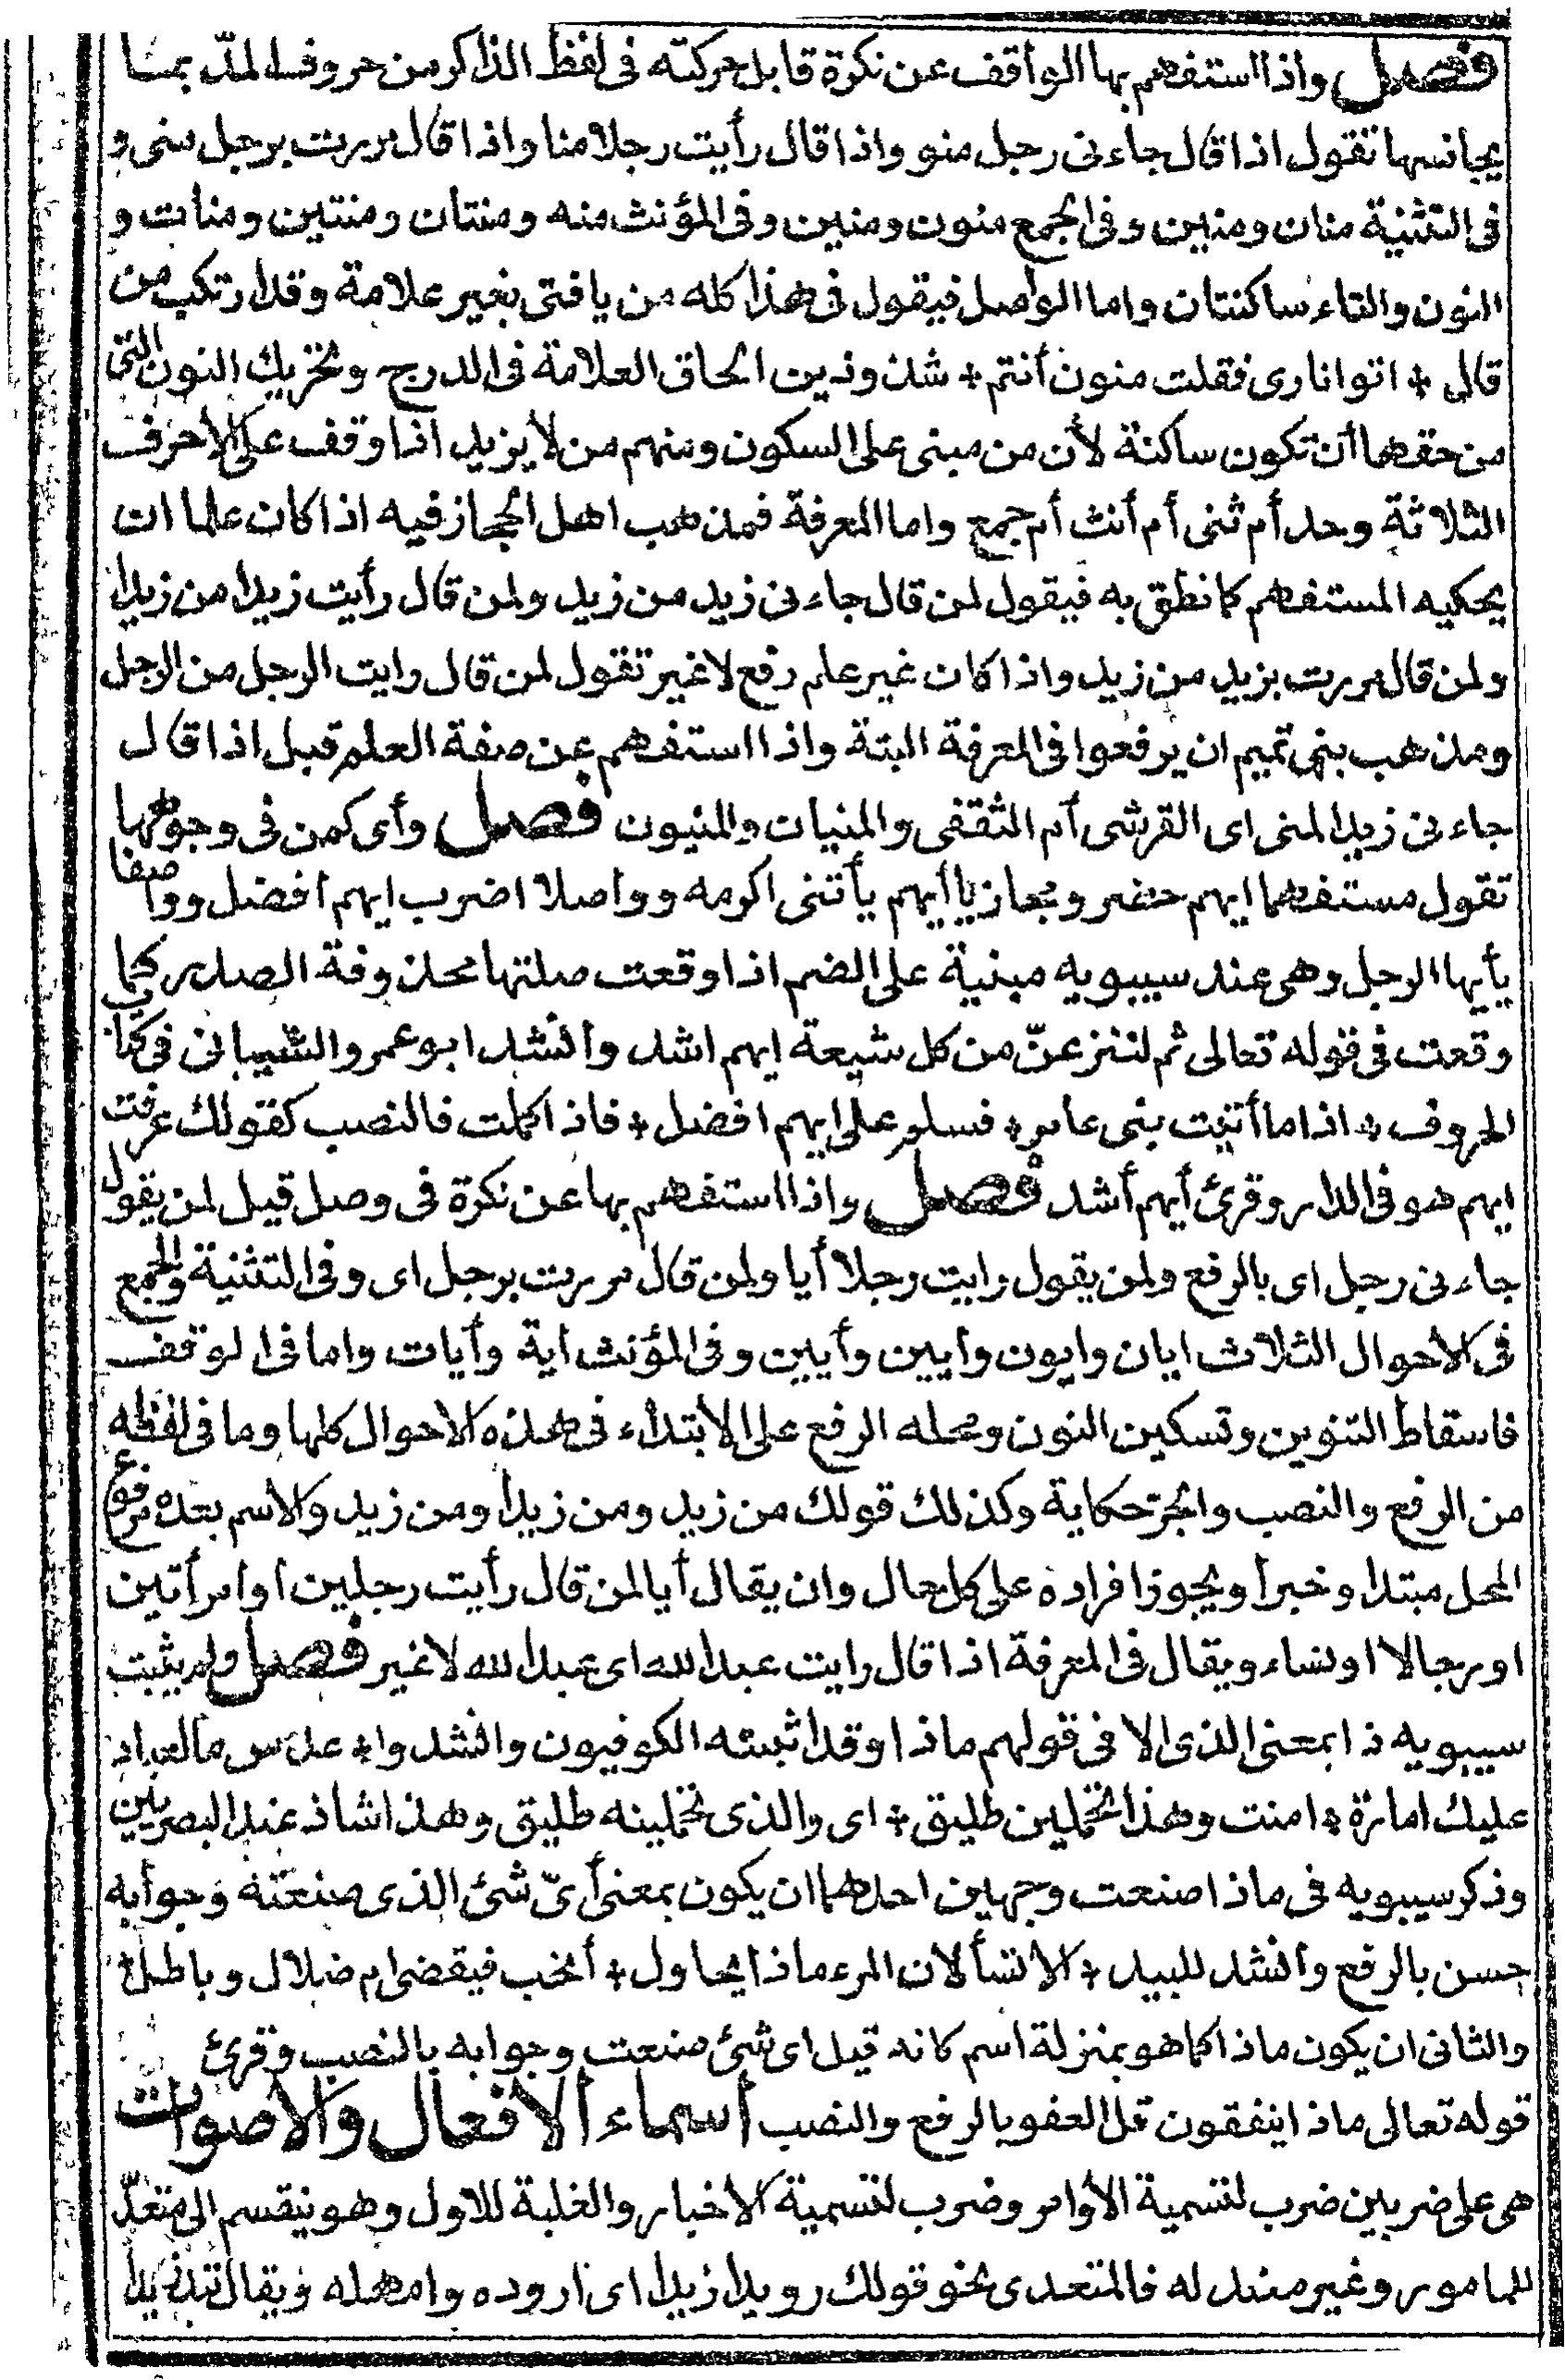 فصل واذا استفهم بها الواقف عن نكرة قابل حركته فى لفظ الذاكر من حروف المدّ بما
يجانسها تقول اذا قال جاءنى رجل منو واذا قال رأيت رجلا منا واذا قال مررت برجل منى و
فى التثنية منان ومنين وفى الجمع منون ومنين وفى المؤنث منه ومنتان ومنتين ومنات و
النون والتاء ساكنتان واما الواصل فيقول فى هذا كله من يا فتى بغير علامة وقد ارتكب من
قال * اتوا نارى فقلت منون أنتم * شذوذين الحاق العلامة فى الدرج وتحريك النون التى
من حقها أن تكون ساكنة لأن من مبنى على السكون ومنهم من لا يزيد اذا وقف على الأحرف
الثلاثة وحد أم ثنى أم أنث أم جمع واما المعرفة فمذهب اهل الحجاز فيه اذا كان علما ان
يحكيه المستفهم كما نطق به فيقول لمن قال جاءنى زيد من زيد ولمن قال رأيت زيدا من زيدا
ولمن قال مررت بزيد من زيد واذا كان غير علم رفع لا غير تقول لمن قال رايت الرجل من الرجل
ومذهب بنى تميم ان يرفعوا فى المعرفة البتة واذا استفهم عن صفة العلم قيل اذا قال
جاءنى زيد المنى اى القرشى أم الثقفى والمنيان والمنيون فصل وأى كمن فى وجوهها
تقول مستفهما ايهم حضر ومجازيا أيهم يأتنى اكرمه وواصلا اضرب ايهم افضل وواصفا
يأيها الرجل وهى عند سيبويه مبنية على الضم اذا وقعت صلتها محذوفة الصدر كما
وقعت فى قوله تعالى ثم لننزعنّ من كل شيعة ايهم اشد وأنشد ابو عمرو الشيبانى فى كتاب
الحروف * اذا ما أتيت بنى عامر * فسلم على ايهم افضل * فاذا كملت فالنصب كقولك عرفت
ايهم هو فى الدار وقرئ أيهم أشد فصل واذا استفهم بها عن نكرة فى وصل قيل لمن يقول
جاءنى رجل اى بالرفع ولمن يقول رايت رجلا أيا ولمن قال مررت برجل اى وفى التثنية والجمع
فى الأحوال الثلاث ايان وايون وأيين وأيين وفى المؤنث اية وأيات واما فى الوقف
فاسقاط التنوين وتسكين النون ومحله الرفع على الابتداء فى هذه الأحوال كلها وما فى لفظه
من الرفع والنصب والجرّ حكاية وكذلك قولك من زيد ومن زيدا ومن زيد والاسم بعده مرفوع
المحل مبتدا وخبرا ويجوز افراده على كل حال وان يقال أيا لمن قال رأيت رجلين او امرأتين
او رجالا او نساء ويقال فى المعرفة اذا قال رايت عبد الله اى عبد الله لا غير فصل ولم يثبت
سيبويه ذا بمعنى الذى الا فى قولهم ماذا وقد اثبته الكوفيون وانشدوا * عدس ما لعباد
عليك امارة * امنت وهذا تحملين طليق * اى والذى تحملينه طليق وهذا شاذ عند البصريين
وذكر سيبويه فى ماذا صنعت وجهين احدهما ان يكون بمعنى أىّ شئ الذى صنعته وجوابه
حسن بالرفع وأنشد للبيد * ألا تسألان المرء ماذا يحاول * أنحب فيقضى ام ضلال وباطل
والثانى ان يكون ماذا كما هو بمنزلة اسم كانه قيل اى شئ صنعت وجوابه بالنصب وقرئ
قوله تعالى ماذا ينفقون قل العفو بالرفع والنصب أسماء الافعال والاصوات
هى على ضربين ضرب لتسمية الأوامر وضرب لتسمية الأخبار والغلبة للاول وهو ينقسم الى متعدّ
للمامور وغير متعد له فالمتعدى نحو قولك رويد زيدا اى اروده وامهله ويقال تيد زيدا